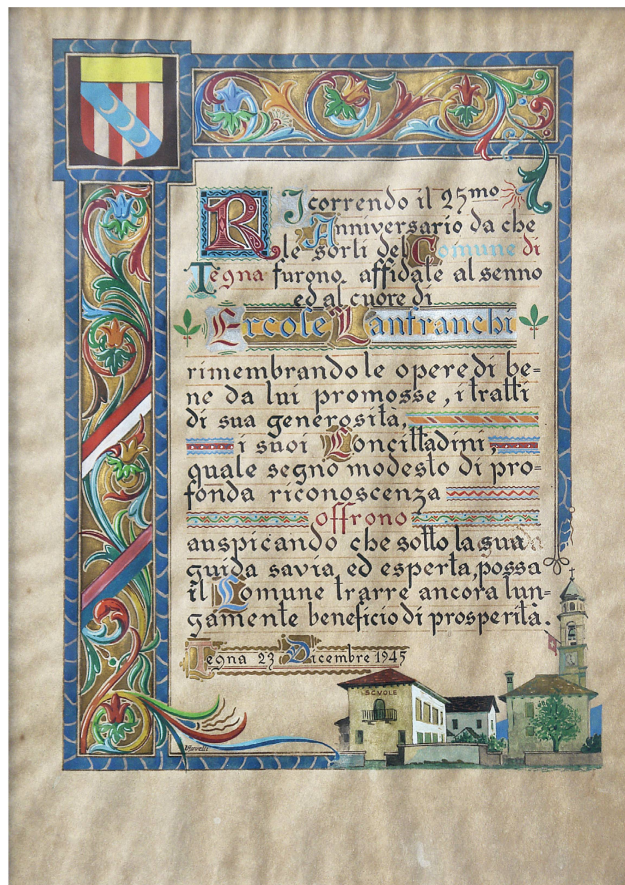 Ricorrendo il 25mo
Anniversario da che
le sorti del Comune di
Tegna furono affidate al senno
ed al cuore di
Ercole Lanfranchi
rimembrando le opere di be=
ne da lui promosse, i tratti
di sua generosità,
i suoi Concittadini,
quale segno modesto di pro=
fonda riconoscenza
offrono
auspicando che sotto la sua
guida savia, ed esperta, possa
il Comune trarre ancora lun=
gamente beneficio di prosperità.
Tegna 23 Dicembre 1945
SCUOLE